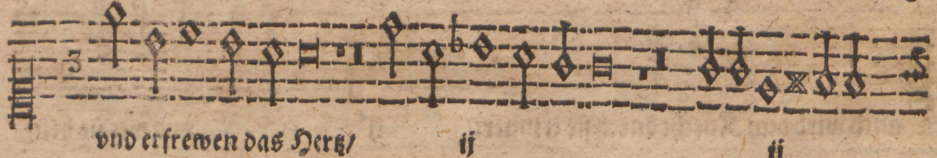 3
vnd erfrewen das Hertz/ ij ij